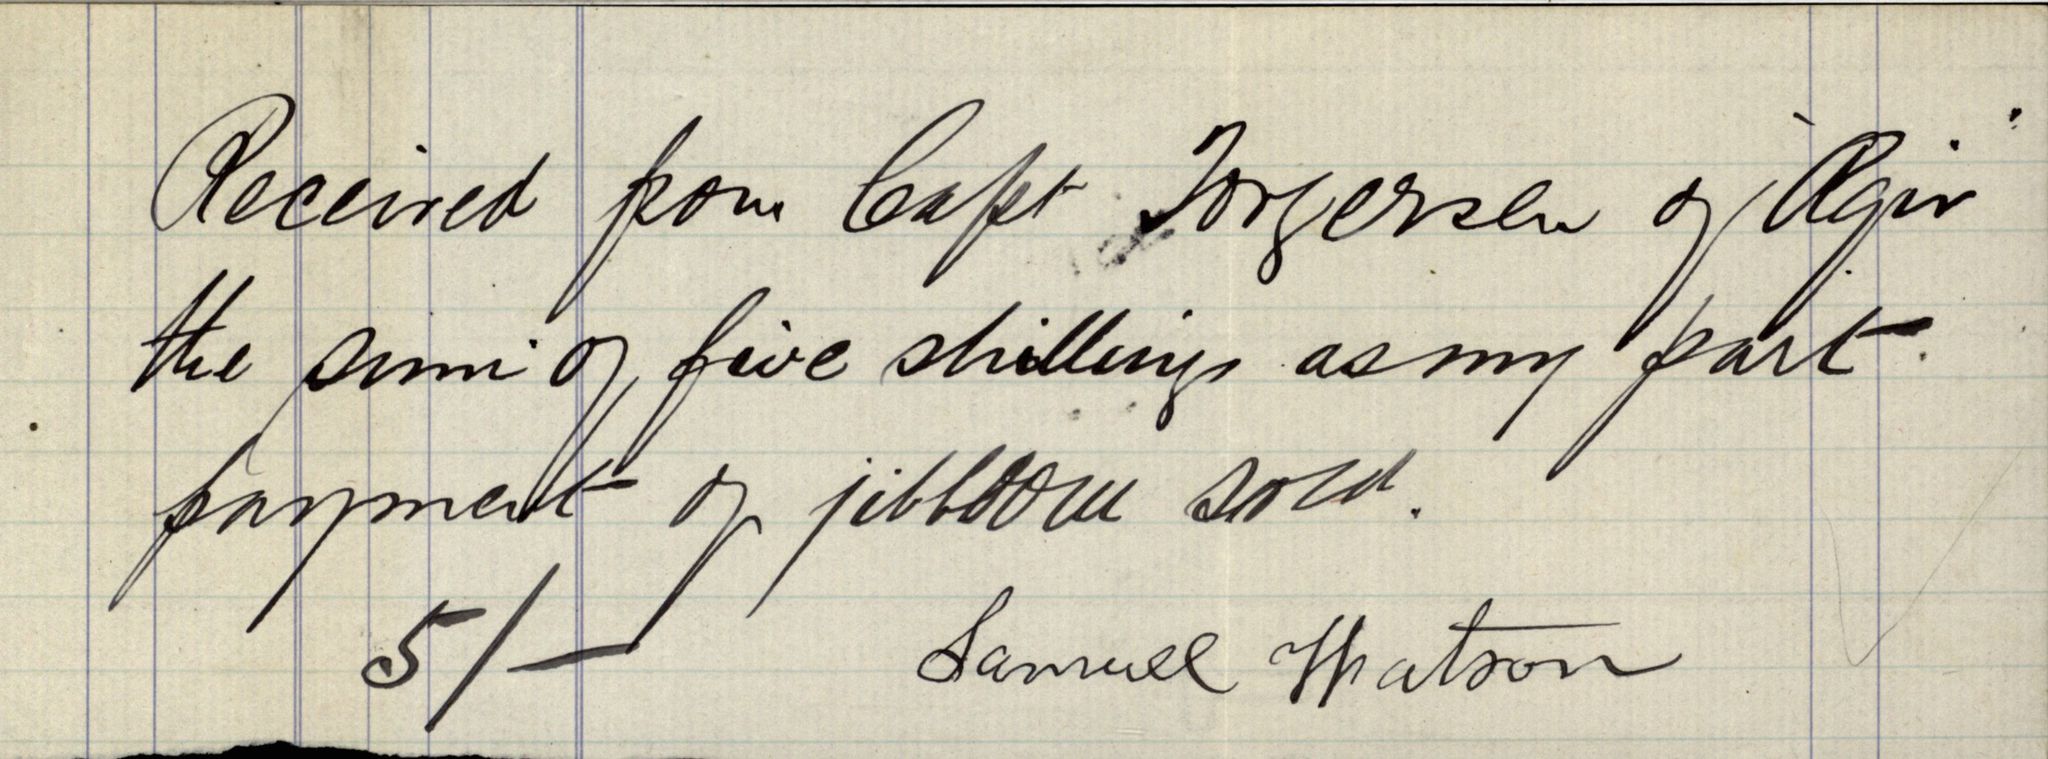 Received from Capt Torgersen of "Ægir"
the sum of five shillings as my part
payment of jibboom sold.
5/—
Samuel Watson